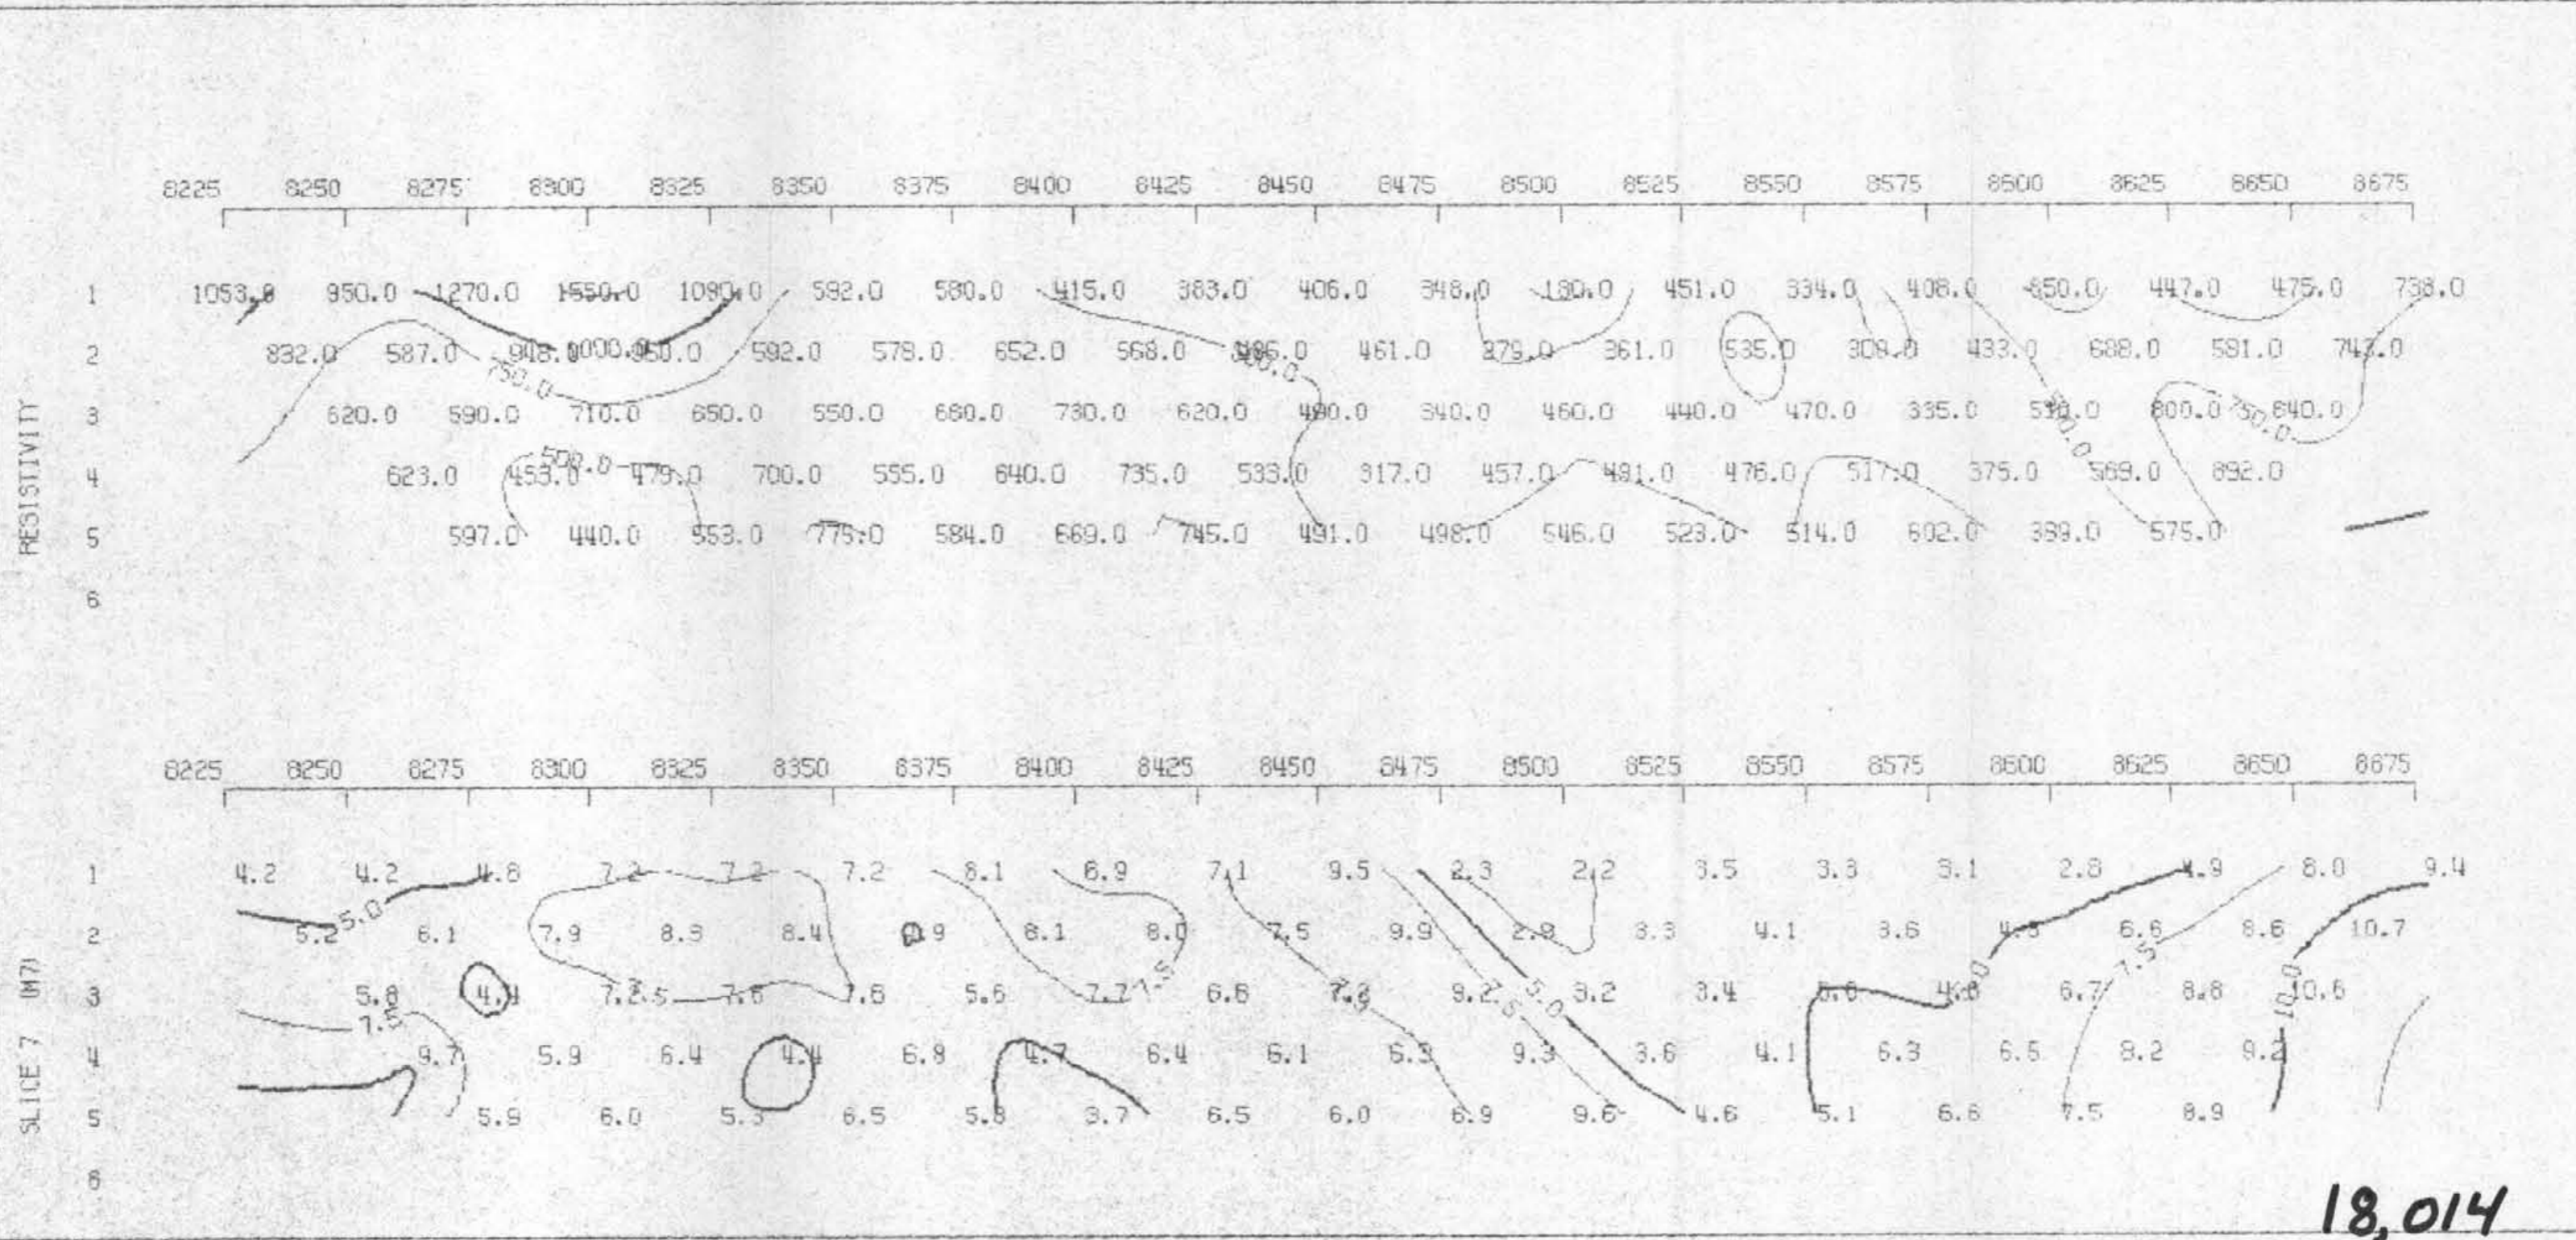 8225 8250 8275 8300 8325 8350 8375 8400 8425 8450 8475 8500 8525 8550 8575 8600 8625 8650 8675
RESISTIVITY
1 1053.0 950.0 1270.0 1550.0 1090.0 592.0 580.0 415.0 383.0 406.0 348.0 180.0 451.0 334.0 408.0 650.0 447.0 475.0 738.0
2 832.0 587.0 948.0 1000.0 592.0 578.0 652.0 568.0 461.0 279.0 361.0 535.0 309.0 433.0 688.0 591.0 743.0
750.0
3 620.0 590.0 710.0 650.0 550.0 680.0 730.0 620.0 490.0 340.0 460.0 440.0 470.0 335.0 800.0 750.0 640.0
500.0
4 623.0 453.0 479.0 700.0 555.0 640.0 735.0 533.0 317.0 457.0 491.0 476.0 517.0 375.0 569.0 892.0
5 597.0 440.0 553.0 775.0 584.0 669.0 745.0 491.0 498.0 546.0 523.0 514.0 602.0 389.0 575.0
6
8225 8250 8275 8300 8325 8350 8375 8400 8425 8450 8475 8500 8525 8550 8575 8600 8625 8650 8675
SLICE 7 (M7)
1 4.2 4.2 4.8 7.2 7.2 7.2 8.1 6.9 7.1 9.5 2.3 2.2 3.5 3.8 3.1 2.8 4.9 8.0 9.4
5.0
2 5.2 6.1 7.9 8.9 8.4 8.1 8.0 7.5 9.9 2.9 3.3 4.1 3.6 6.6 8.6 10.7
7.5 7.5
3 5.8 4.4 7.2 7.6 7.6 5.6 7.7 6.6 9.2 7.5 5.0 3.2 3.4 4.8 6.7 8.8 10.0 10.6
7.5
4 9.7 5.9 6.4 4.4 6.8 4.7 6.4 6.1 6.3 9.3 3.6 4.1 6.3 6.5 8.2 9.2
5 5.9 6.0 5.3 6.5 5.8 3.7 6.5 6.0 6.9 9.6 4.6 5.1 6.6 7.5 8.9
6
18,014